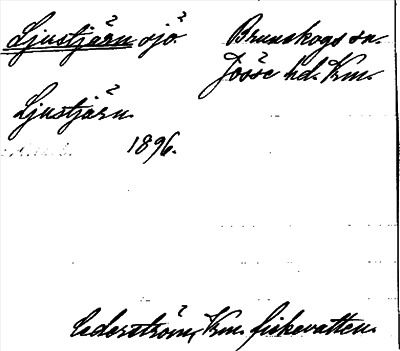 Ljustjärn sjö. Brunskogs sn.
Jösse hd. Krm.
Ljustjärn.
1896.
Cederström, Krm. fiskevatten.